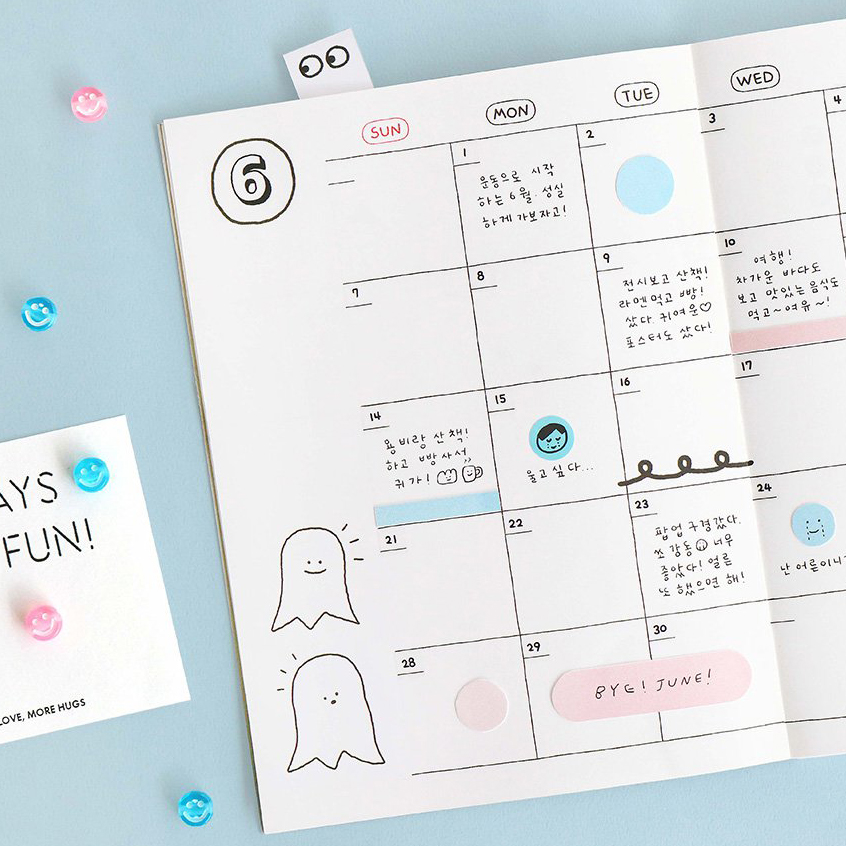 6
SUN
MON
TUE
WED
1
운동으로 시작
하는 6월. 성실
하게 가보자고!
2
3
4
7
8
9
전시보고 산책!
라멘먹고 빵!
샀다. 귀여운♡
포스터도 샀다!
10
여행!
차가운 바다도
보고 맛있는 음식도
먹고~여유~!
14
용비랑 산책!
하고 빵사서
귀가!
15
울고싶다...
16
17
21
22
23
팝업 구경갔다.
쏘 감동 너무
좋았다! 얼른
또 했으면 해!
24
난 어른이니
28
29
30
BYE! JUNE!
AYS
FUN!
LOVE, MORE HUGS